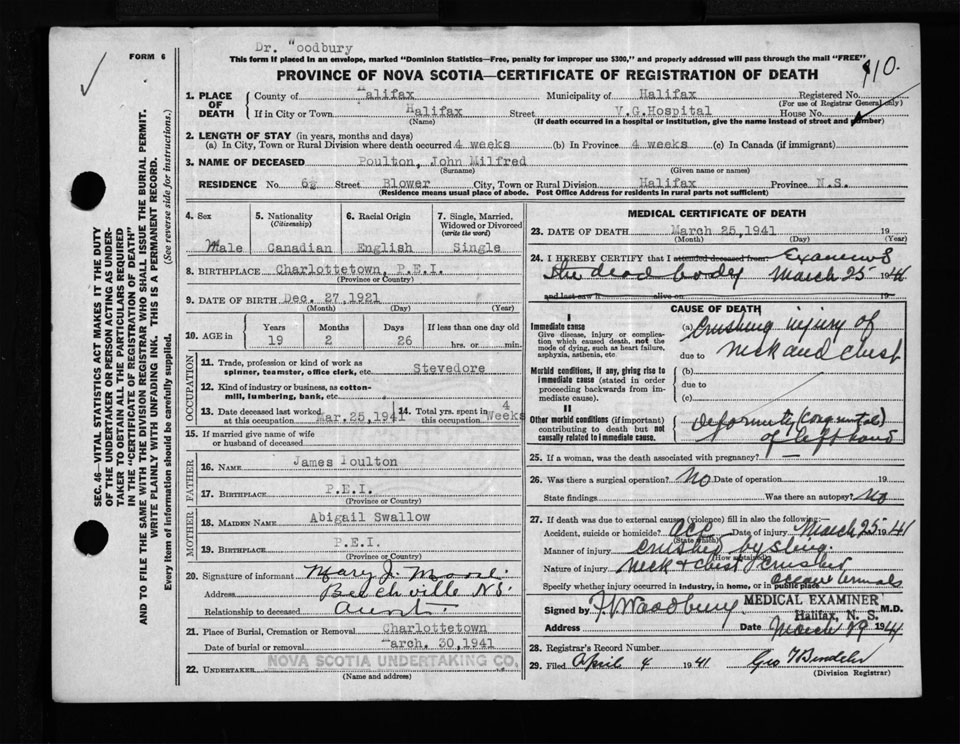 Dr. Woodbury
FORM 6
This form if placed in an envelope, marked "Dominion Statistics—Free, penalty for improper use $300," and properly addressed will pass through the mail "FREE"
PROVINCE OF NOVA SCOTIA—CERTIFICATE OF REGISTRATION OF DEATH
SEC. 46—VITAL STATISTICS ACT MAKES IT THE DUTY
OF THE UNDERTAKER OR PERSON ACTING AS UNDER-
TAKER TO OBTAIN ALL THE PARTICULARS REQUIRED
IN THE "CERTIFICATE OF REGISTRATION OF DEATH"
AND TO FILE THE SAME WITH THE DIVISION REGISTRAR WHO SHALL ISSUE THE BURIAL PERMIT.
WRITE PLAINLY WITH UNFADING INK. THIS IS A PERMANENT RECORD.
Every item of information should be carefully supplied. (See reverse side for instructions.)
1. PLACE OF DEATH County of Halifax Municipality of Halifax Registered No.
(For use of Registrar General only)
If in City or Town Halifax Street V.G.Hospital House No.
(Name) (If death occurred in a hospital or institution, give the name instead of street and number)
2. LENGTH OF STAY (in years, months and days)
(a) In City, Town or Rural Division where death occurred 4 weeks (b) In Province 4 weeks (c) In Canada (if immigrant)
3. NAME OF DECEASED Poulton, John Milfred
(Surname) (Given name or names)
RESIDENCE No. 6½ Street Blower City, Town or Rural Division Halifax Province N.S.
(Residence means usual place of abode. Post Office Address for residents in rural parts not sufficient)
4. Sex Male
5. Nationality (Citizenship) Canadian
6. Racial Origin English
7. Single, Married, Widowed or Divorced (write the word) Single
8. BIRTHPLACE Charlottetown, P.E.I.
(Province or Country)
9. DATE OF BIRTH Dec. 27,1921
(Month) (Day) (Year)
10. AGE in Years 19 Months 2 Days 26 If less than one day old hrs. or min.
OCCUPATION
11. Trade, profession or kind of work as spinner, teamster, office clerk, etc. Stevedore
12. Kind of industry or business, as cotton-mill, lumbering, bank, etc.
13. Date deceased last worked at this occupation Mar.25,1941
14. Total yrs. spent in this occupation 4 Weeks
15. If married give name of wife or husband of deceased
FATHER
16. NAME James Poulton
17. BIRTHPLACE P.E.I.
(Province or Country)
MOTHER
18. MAIDEN NAME Abigail Swallow
19. BIRTHPLACE P.E.I.
(Province or Country)
20. Signature of informant Mary J.
Address Beechville N.S.
Relationship to deceased Aunt.
21. Place of Burial, Cremation or Removal Charlottetown
Date of burial or removal March. 30,1941
22. UNDERTAKER NOVA SCOTIA UNDERTAKING CO.
(Name and address)
MEDICAL CERTIFICATE OF DEATH
23. DATE OF DEATH March 25,1941 19
(Month) (Day) (Year)
24. I HEREBY CERTIFY that I attended deceased from: Examined
the dead body March 25 1941
and last saw h alive on 19
CAUSE OF DEATH
I
Immediate cause
Give disease, injury or complication which caused death, not the mode of dying, such as heart failure, asphyxia, asthenia, etc.
(a) Crushing injury of
due to neck and chest
Morbid conditions, if any, giving rise to immediate cause (stated in order proceeding backwards from immediate cause).
(b)
due to
(c)
II
Other morbid conditions (if important) contributing to death but not causally related to immediate cause.
Deformity (congenital)
of left hand
25. If a woman, was the death associated with pregnancy? —
26. Was there a surgical operation? No Date of operation
State findings Was there an autopsy? No
27. If death was due to external causes (violence) fill in also the following:—
Accident, suicide or homicide? Acc Date of injury March 25 1941
(State which)
Manner of injury Crushed by sling.
(How sustained)
Nature of injury Neck & chest crushed
Specify whether injury occurred in industry, in home, or in public place Ocean Terminals
Signed by F.V. Woodbury M.D.
MEDICAL EXAMINER
Halifax, N. S.
Address Date March 29 1941
28. Registrar's Record Number
29. Filed April 4 1941
(Division Registrar)